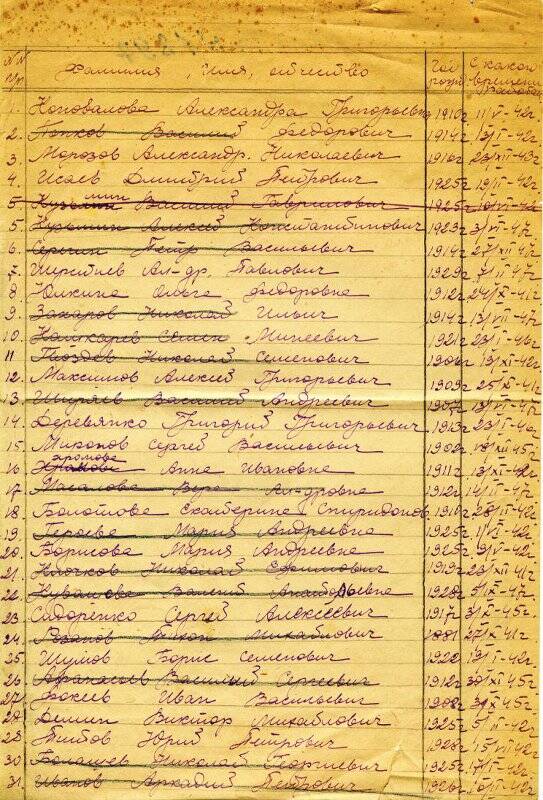 №№ п/п Фамилия, имя, отчество Год рожд. С какого времени работает
1. Коновалова Александра Григорьевна 1910г 11/V-42г.
2. Попков Василий Федорович 1914г 13/II-42г.
3. Морозов Александр. Николаевич 1910г 23/XII-43г
4. Исаев Дмитрий Петрович 1925г 19/II-42г.
5 Кузьмин Василий Гаврилович 1925г
5. Кузьмин Алексей Константинович 1923г 3/VII-47г
6. Серегин Петр Васильевич 1914г 27/XII-47г
7. Ал-др. Павлович 1929г 7/II-47г
8 Юшкина Ольга Федоровна 1912г 24/XI-41г
9. Захаров Николай Ильич 1914г 13/VII-47г
10. Семен Минеевич 1921г 23/I-46г
11 Гвоздев Николай Семенович 1908г 13/XI-42г
12. Максимов Алексей Григорьевич 1909г 25/XI-41г
13. Василий Андреевич 1907г 13/VII-47г
14. Деревянко Григорий Григорьевич 1913г
15. Миронов Сергей Васильевич 1902г 18/XII-45г
16 Анна Ивановна 1911г 13/XI-42г
17. Масалова Вера Ал-дровна 1912г 14/II-47г
18 Болотова Екатерина Спиридонов. 1910г 28/II-42г
19. Мария Андреевна 1925г 11/VI-42г
20. Борисова Мария Андреевна 1925г 19/V-42г
21. Клочков Николай 1919г 26/XII 41г
22. 1928г 5/IX-47г
23 Сидоренко Сергей Алексеевич 1917г 3/XI-45г.
24. Михайлович 27/XI-41г
25. Шумов Борис Семенович 1922г 13/I-42г
26 Афанасьев Василий Сергеевич 1912г 30/XI 45г
27 Фокеев Иван Васильевич 1908г 31/X 45г
28. Демин Виктор Михайлович 1925г 5/II-42г
28 Глебов Юрий Петрович 1928г 15/VIII 42г
30 Балашев Николай Георгиевич 1925г 17/II-42г
31. Иванов Аркадий Петрович 1926г 10/II-42г